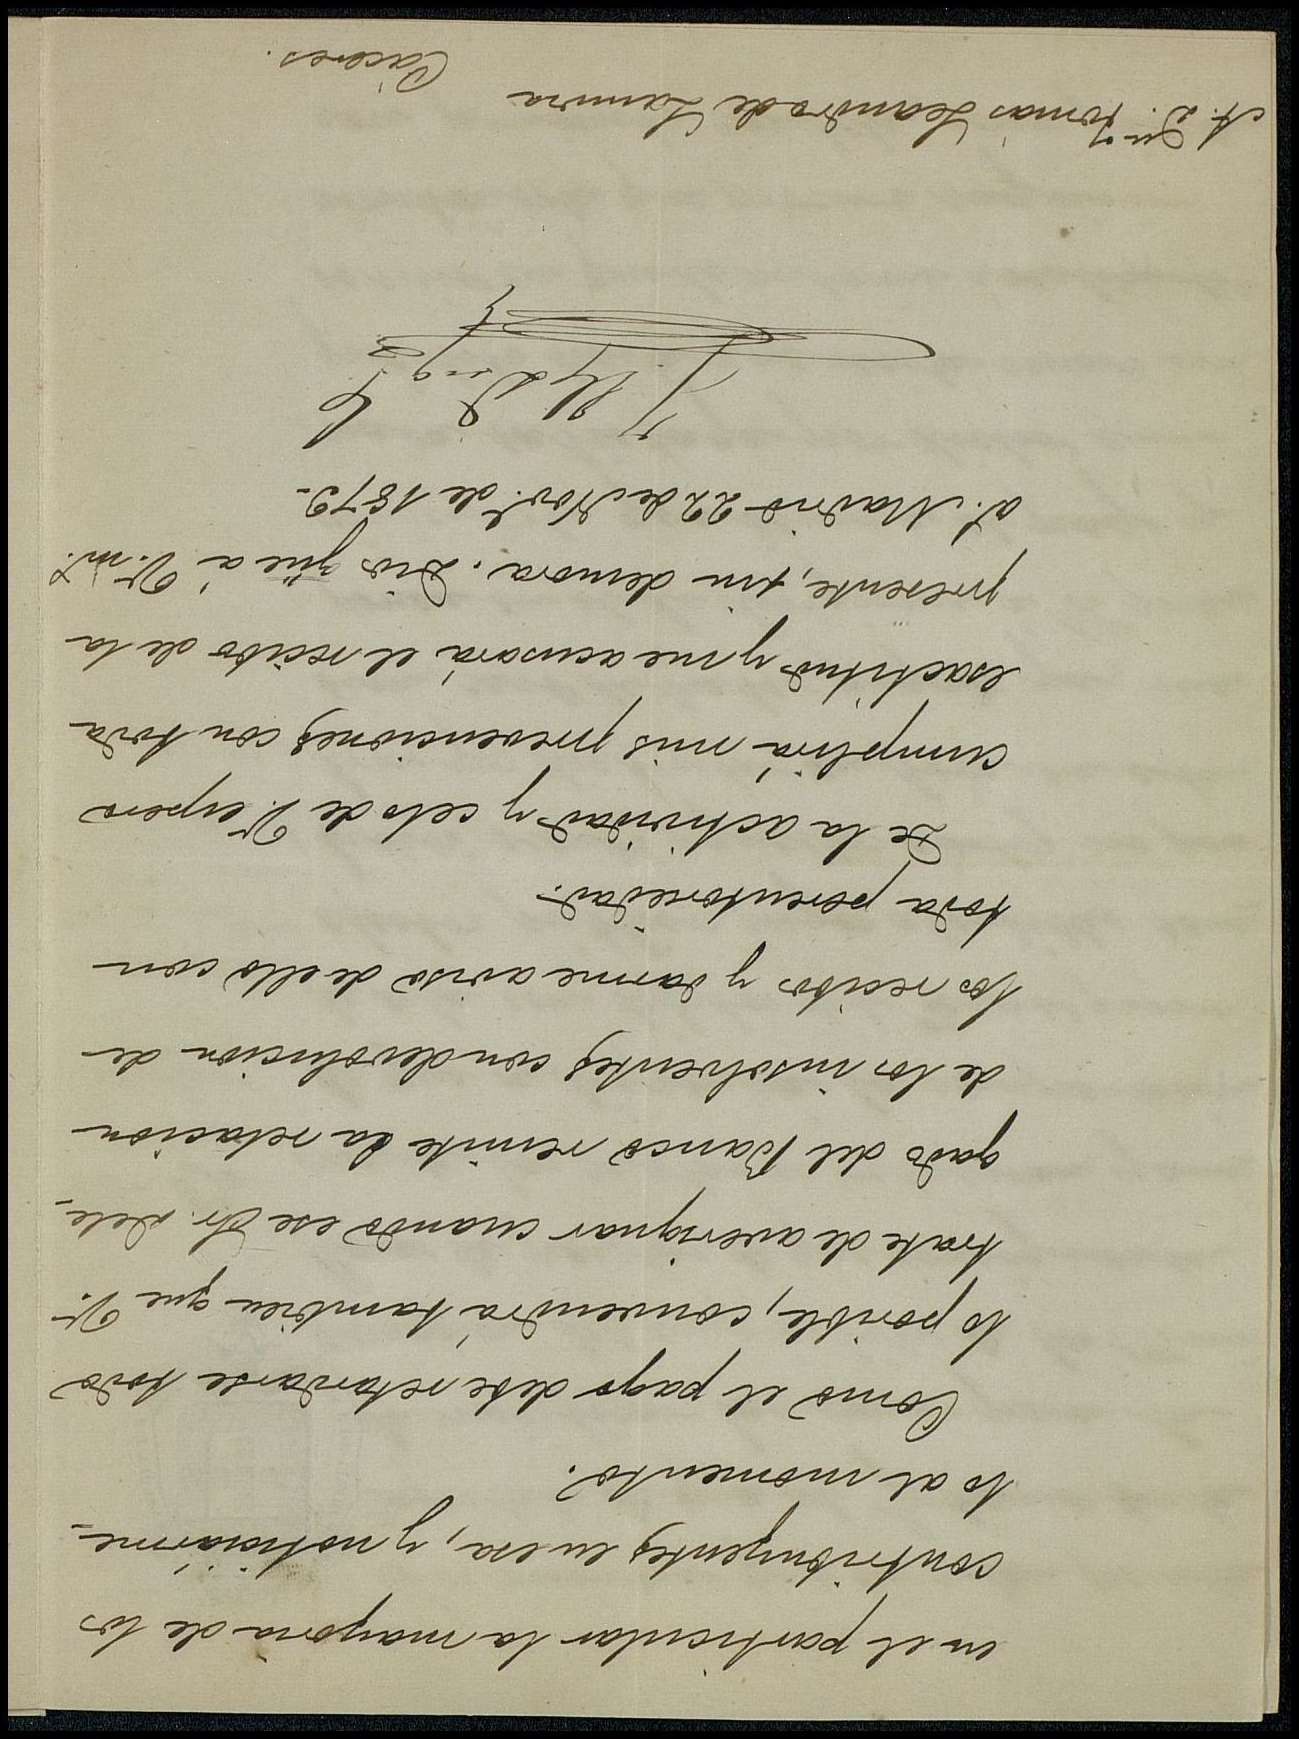 en el particular la mayoria de los
contribuyentes en esa, y noticiárme-
lo al momento.
Como el pago debe retardarse todo
lo posible, convendrá tambien que V.
trate de averiguar cuando ese Sr. Dele-
gado del Banco remite la relacion
de los insolventes con devolucion de
los recibos y darme aviso de ello con
toda perentoriedad.
De la actividad y celo de V. espero
cumplirá mis prevenciones con toda
esactitud y me acusará el recibo de la
presente, sin demora. Dios güe á V. m.s
a.s Madrid 22 de Nov.e de 1879.
A. D.n Tomás Leandro de Zamora
Cáceres.